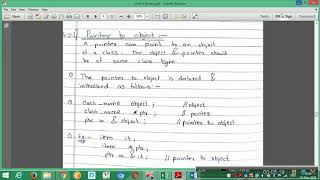 Pointer to object :-
A pointer can point to an object
of a class. The object & pointer should
be of same class type.
The pointer to object is declared &
initialized as follows :-
class_name object ; //object
class_name *ptr ; // pointer
ptr = & object ; //pointer to object
Eg:- item it ;
item *ptr ;
ptr = & it ; // pointer to object